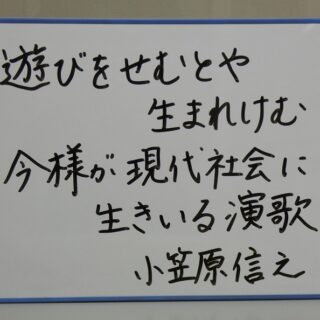 遊びをせむとや
生まれけむ
今様が現代社会に
生きいる演歌
小笠原信之